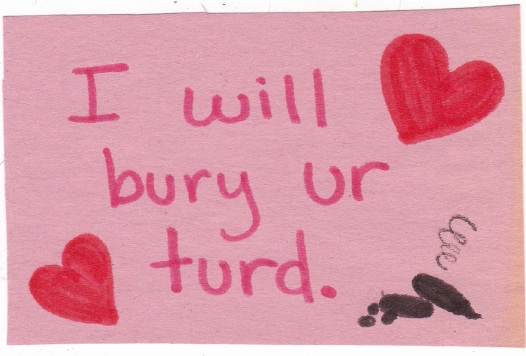 I will
bury ur
turd.